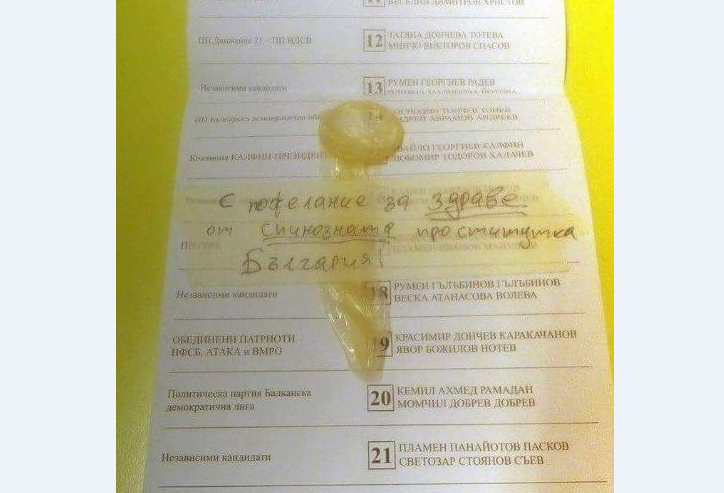 11 ВЕСЕЛИН ДИМИТРОВ ХРИСТОВ
ПП Движение 21 – ПП НДСВ 12 ТАТЯНА ДОНЧЕВА ТОТЕВА
МИНЧО ВИКТОРОВ СПАСОВ
Независими кандидати 13 РУМЕН ГЕОРГИЕВ РАДЕВ
14
АНДРЕЙ АВРАМОВ АНДРЕЕВ
Коалиция КАЛФИН-ПРЕЗИДЕНТ ИВАЙЛО ГЕОРГИЕВ КАЛФИН
ЛЮБОМИР ТОДОРОВ ХАДАЧЕВ
С пожелание за здраве
от спинозната проститутка
България!
18 РУМЕН ГЪЛЪБИНОВ ГЪЛЪБИНОВ
Независими кандидати ВЕСКА АТАНАСОВА ВОЛЕВА
ОБЕДИНЕНИ ПАТРИОТИ – 19 КРАСИМИР ДОНЧЕВ КАРАКАЧАНОВ
НФСБ, АТАКА и ВМРО ЯВОР БОЖИЛОВ НОТЕВ
Политическа партия Балканска 20 КЕМИЛ АХМЕД РАМАДАН
демократична лига МОМЧИЛ ДОБРЕВ ДОБРЕВ
21 ПЛАМЕН ПАНАЙОТОВ ПАСКОВ
Независими кандидати СВЕТОЗАР СТОЯНОВ СЪЕВ